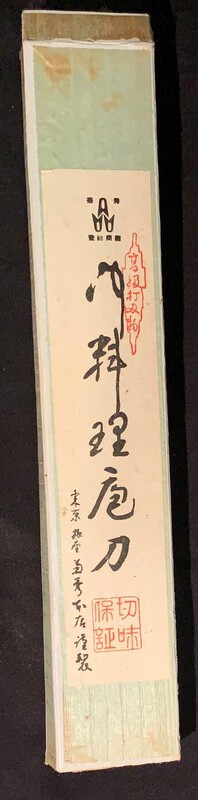 菊秀
登録商標
高級打刃物
御料理庖丁
東京銀座菊秀本店謹製
切味
保証